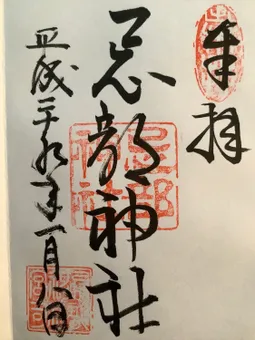 奉拝
忌部神社
平成二十九年一月八日